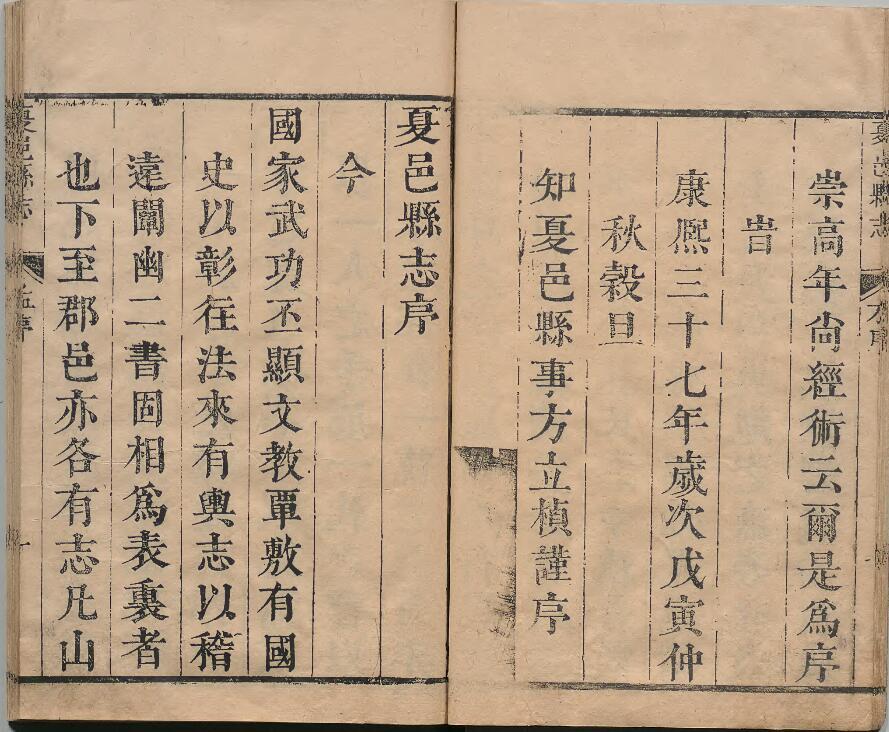 夏邑縣志
崇高年尙經術云爾是爲序
旹
康熈三十七年歲次戊寅仲
秋榖旦
知夏邑縣事方立楨謹序
夏邑縣志序
今
國家武功丕顯文教覃敷有國
史以彰徃法來有輿志以稽
遠闡幽二書固相爲表裏者
也下至郡邑亦各有志凡山
夏邑縣志
一